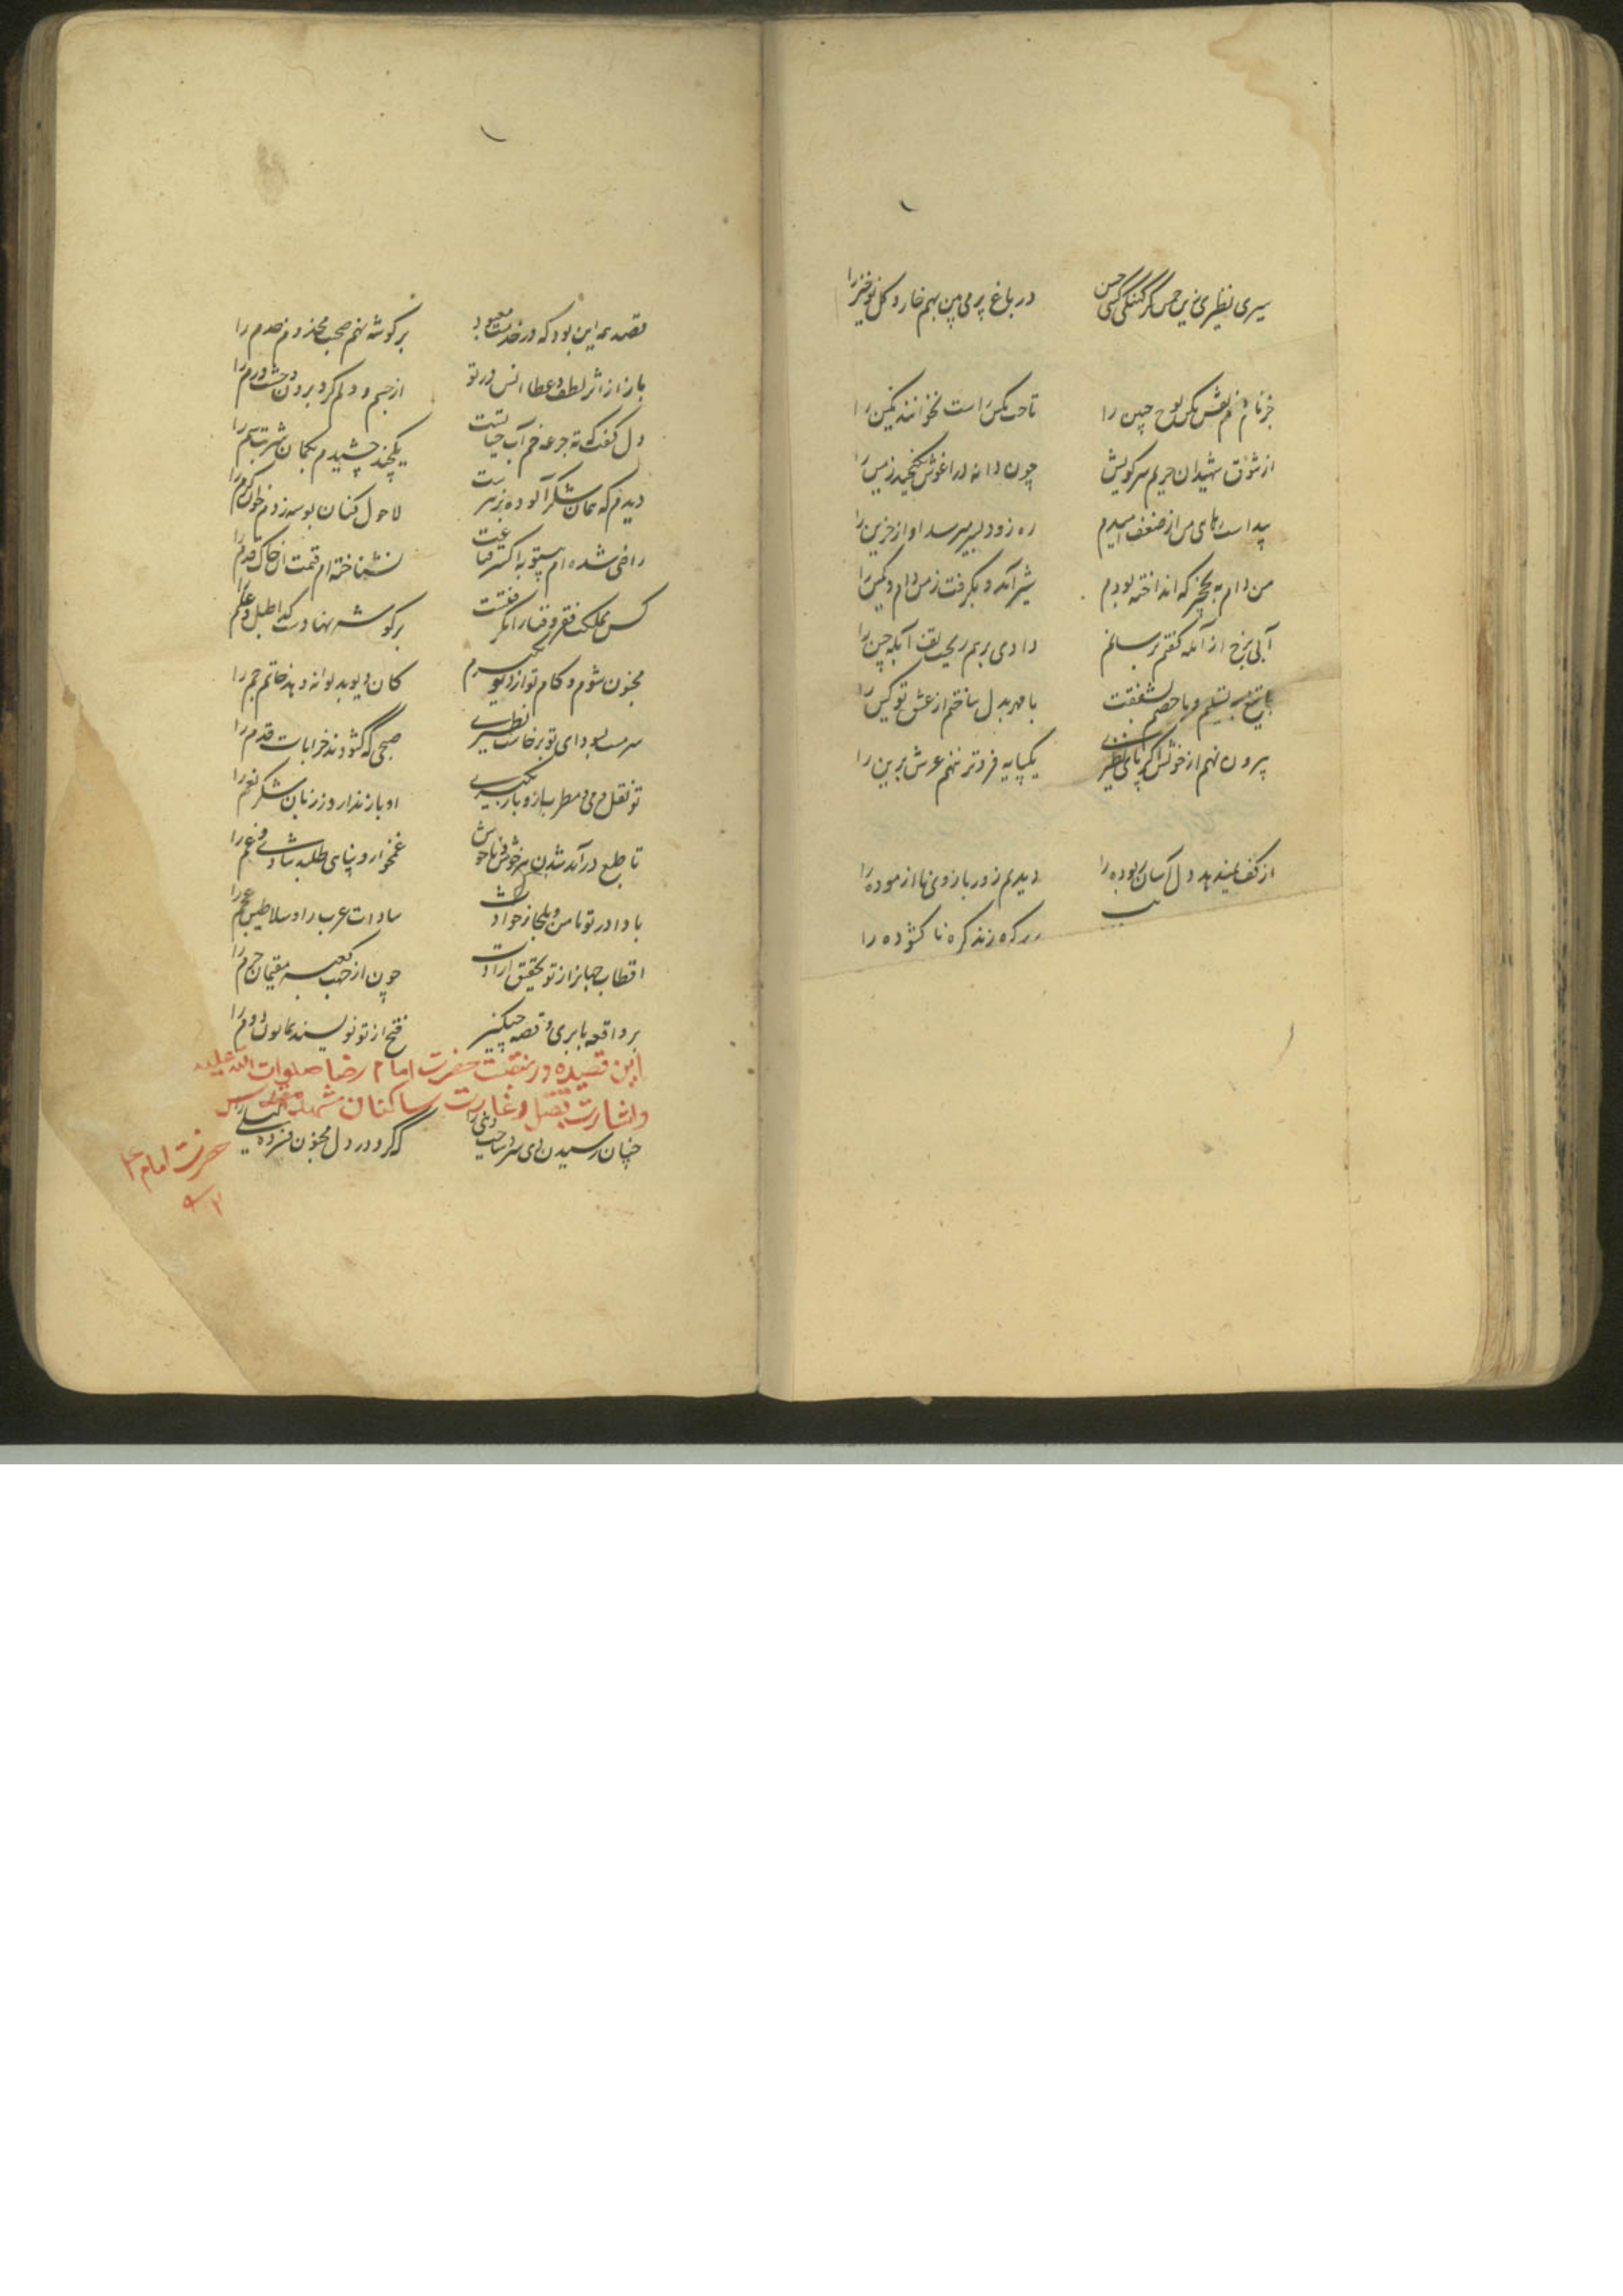 سیری نظیری زین چمن گر گنگی حسن
در باغ پر می بین بهم خار و گل نوخیز را
جز نام صنم نقش مکن لوح جبین را
تا حک نکنی راست نخوانند نگین را
از شوق شهیدان حریم سر کویش
چون دانه در اغوش نگنجید زمین را
پیداست رهای من از ضعف امیدم
ره زود بسر میرسد اواز حزین را
من دام به نخچیر که انداخته بودم
شیر آمد و بگرفت ز من دام و کمین را
آبی برخ از آبله گفتم برسانم
دادی بهم ریخت آبله چین را
با تیغ به تسلیم و با خصم بشفقت
با مهر بدل ساختم از عشق تو کین را
بیرون نهم از خویش اگر پای نظیری
یکپایه فروتر ننهم عرش برین را
از کف نمیدهد دل آسان ربوده را
دیدیم زور بازوی نا ازموده را
گره زند گره ناگشوده را
قصدم همه این بود که در خدمت معبود
بر گوشه نهم صحبت مخدوم و خدم را
باز از اثر لطف و عطا انس در تو
از جسم و دلم کرد برون وحشت و رم را
دل گفت که ته جرعه خم آب حیاتست
یکچند چشیدم بگمان شربت سم را
دیدم که همان شکر آلوده بزهرست
لاحول کنان بوسه زدم خوان کرم را
راضی شده ام بیتو به اکسیر قناعت
نشناخته ام قیمت ان خاک قدم را
کس مملکت فقر و فنا را نگرفتست
بر گوشه نهادست گدا طبل و علم را
مجنون شوم و کام تو از دیو بگیرم
کان دیو بدیوانه دهد خاتم جم را
سرمست بسودای تو برخاست نظیری
صبحی که گشودند خرابات قدم را
تو نقل و می و مطرب و باز نگیری
او باز ندارد ز زبان شکر نعم را
تا طبع درآمد شدن خوش و ناخوش
غمخوار و پنای طلبد شادی و غم را
بادا در تو مامن و ملجا ز حوادث
سادات عرب را و سلاطین عجم را
اقطاب جهانرا ز تو تحقیق ارادت
چون از حجب کعبه مقیمان حرم را
بر واقعه بابری و قصه چنگیز
فتح از تو نویسند همایون دوم را
این قصیده در منقبت حضرت امام رضا صلوات الله علیه
و اشارت بقتل و غارت ساکنان مشهد مقدس
حضرت امام ع
چنان رسیدن دی سرد ساخت دنیی را
که گرد در دل مجنون فسرده لیلی را